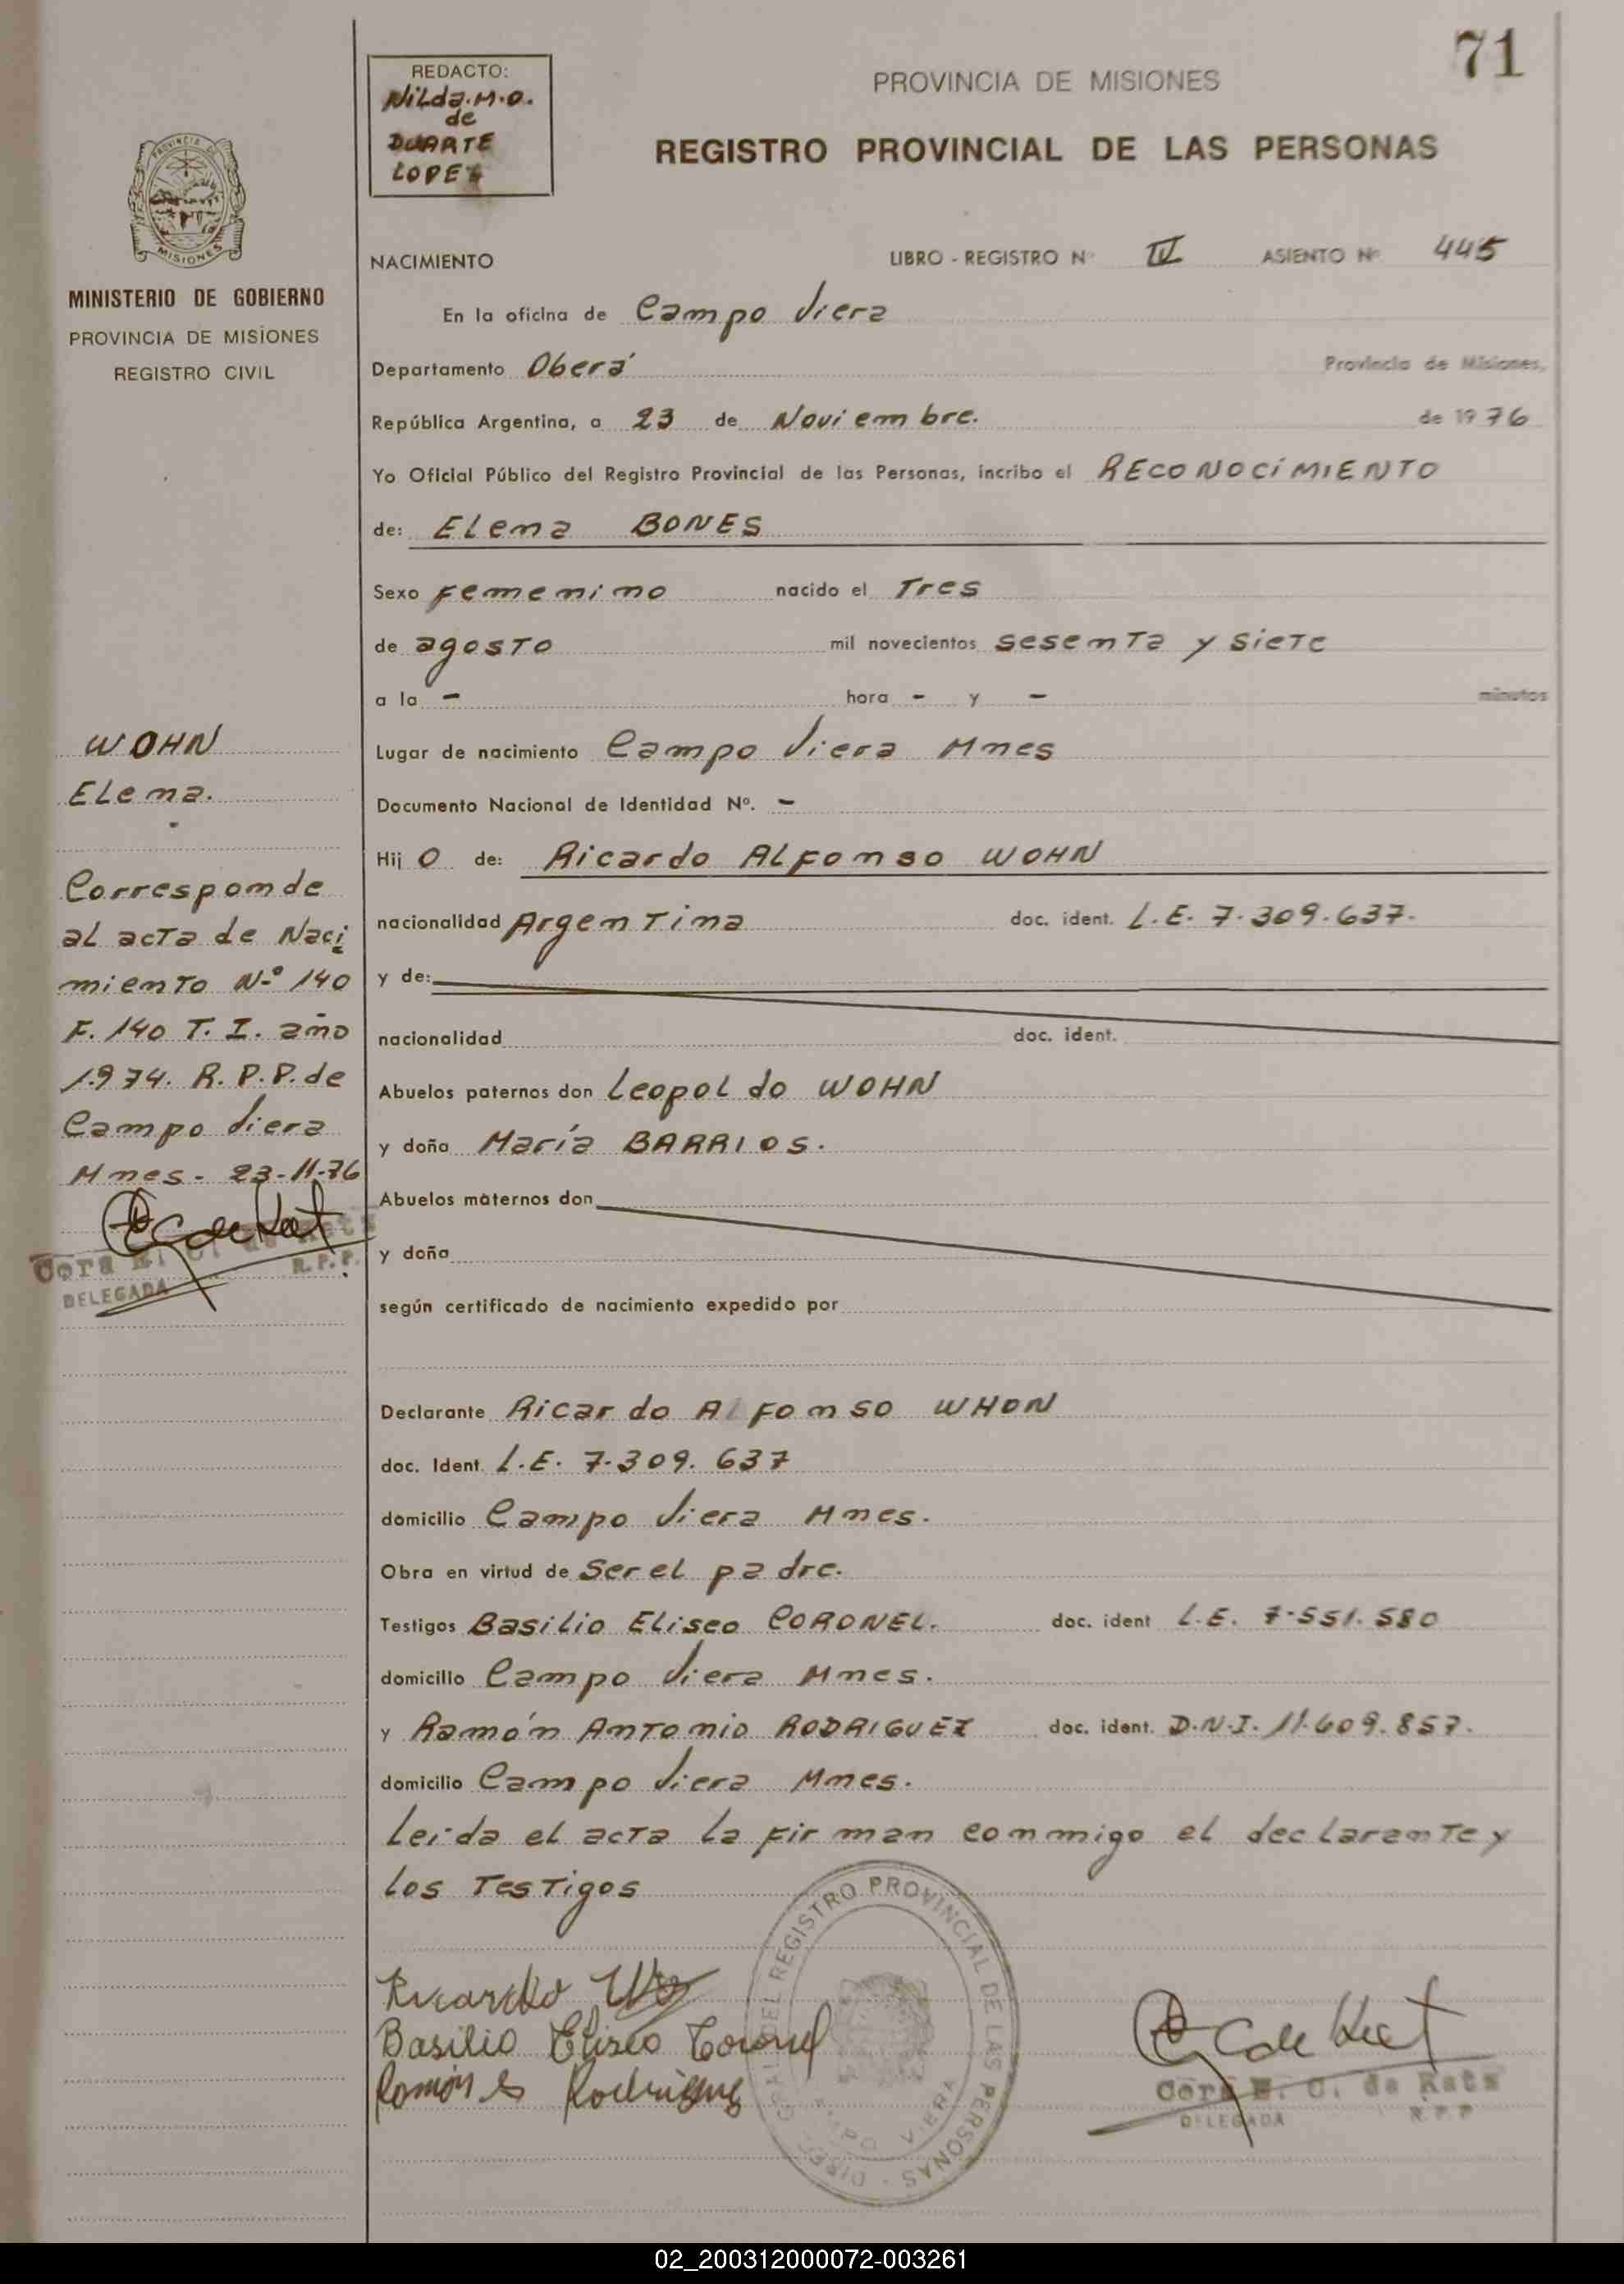 71
REDACTO:
Nilda.M.O.
de
DUARTE
LOPEZ
PROVINCIA DE MISIONES
REGISTRO PROVINCIAL DE LAS PERSONAS
MISIONES
MINISTERIO DE GOBIERNO
PROVINCIA DE MISIONES
REGISTRO CIVIL
NACIMIENTO LIBRO - REGISTRO Nº IV ASIENTO Nº 445
En la oficina de Campo Viera
Departamento Oberá Provincia de Misiones,
República Argentina, a 23 de Noviembre. de 1976
Yo Oficial Público del Registro Provincial de las Personas, incribo el RECONOCIMIENTO
de: Elena BONES
Sexo Femenino nacido el Tres
de agosto mil novecientos sesenta y siete
a la - hora - y - minutos
Lugar de nacimiento Campo Viera Mnes
Documento Nacional de Identidad Nº. -
Hij O de: Ricardo ALFonso WOHN
nacionalidad Argentina doc. ident. L.E. 7.309.637.
y de:
nacionalidad doc. ident.
Abuelos paternos don Leopoldo WOHN
y doña María BARRIOS.
Abuelos maternos don
y doña
según certificado de nacimiento expedido por
Declarante Ricardo Alfonso WHON
doc. Ident. L.E. 7.309.637
domicilio Campo Viera Mnes.
Obra en virtud de Ser el padre.
Testigos Basilio Eliseo CORONEL. doc. ident L.E. 7.551.580
domicilio Campo Viera Mnes.
y Ramón Antonio RODRIGUEZ doc. ident. D.N.I. 11.609.857.
domicilio Campo Viera Mnes.
Leida el acta la firman conmigo el declarante y
los Testigos
WOHN
Elena.
Corresponde
al acta de Naci
miento N.º 140
F. 140 T. I. año
1.974. R.P.P. de
Campo Viera
Mnes - 23-11-76
Cora E. C. de Rats
DELEGADA R.P.P.
Ricardo
Basilio Eliseo Coronel
Ramón Rodriguez
REGISTRO PROVINCIAL DE LAS PERSONAS
Cora E. C. de Rats
DELEGADA R.P.P
02_200312000072-003261